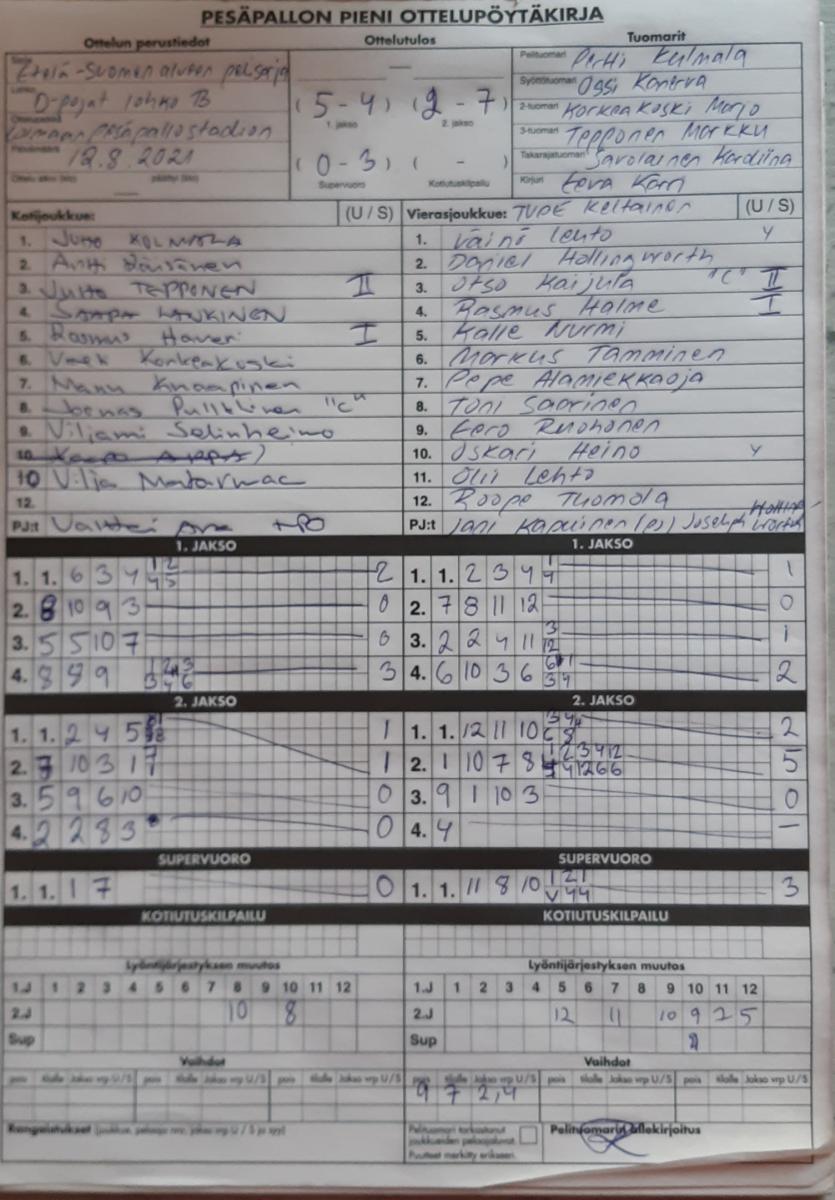 PESÄPALLON PIENI OTTELUPÖYTÄKIRJA
Ottelun perustiedot
Etelä-Suomen alueen pelisarja
D-pojat lohko B
pesäpallostadion
12.8.2021
Ottelutulos
—
(5-4) (2-7)
1. jakso 2. jakso
(0-3) ( - )
Supervuoro Kotiutuskilpailu
Tuomarit
Pelituomari Pertti Kulmala
Syöttötuomari Ossi Konerva
2-tuomari Korkeakoski Marjo
3-tuomari Tepponen Markku
Takarajatuomari Savolainen Karoliina
Kirjuri Eeva Karri
Kotijoukkue: (U / S)
1. Juho KOLMIOLA
2. Antti
3. Juho TEPPONEN II
4. LAUKINEN
5. Rasmus Haveri I
6. Korkeakoski
7. Manu Knaapinen
8. Joonas "C"
9. Viljami Selinheimo
10 Vilja
12.
PJ:t
Vierasjoukkue: TUPE Keltainen (U / S)
1. Väinö Lehto Y
2. Daniel Hollingworth
3. Otso Kaijula "C" II
4. Rasmus Halme I
5. Kalle Nurmi
6. Markus Tamminen
7. Pepe Alamiekkaoja
8. Toni Saarinen
9. Eero Ruohonen
10. Oskari Heino Y
11. Olli Lehto
12. Roope Tuomola
PJ:t Jani Kapuinen (pj) Joseph Hollingworth
1. JAKSO
1. 1. 6 3 4 1 2 2
4 5
2. 8 10 9 3 0
3. 5 5 10 7 0
4. 8 8 9 1 2 3 3
3 4 6
2. JAKSO
1. 1. 2 4 5 1
2. 7 10 3 1 1
3. 5 9 6 10 0
4. 2 2 8 3 0
SUPERVUORO
1. 1. 1 7 0
KOTIUTUSKILPAILU
Lyöntijärjestyksen muutos
1.J 1 2 3 4 5 6 7 8 9 10 11 12
2.J 10 8
Sup
Vaihdot
pois tilalle Jakso vrp U/S pois tilalle Jakso vrp U/S pois tilalle Jakso vrp U/S
Rangaistukset (joukkue, pelaaja nro, jakso vrp U / S ja syy)
1. JAKSO
1. 1. 2 3 4 1 1
4
2. 7 8 11 12 0
3. 2 2 4 11 3 1
12
4. 6 10 3 6 2
3 4
2. JAKSO
1. 1. 12 11 10 3 4 2
6 8
2. 1 10 7 8 1 2 3 4 12 5
4 12 6 6
3. 9 1 10 3 0
4. 4 —
SUPERVUORO
1. 1. 11 8 10 1 2 1 3
V 4 4
KOTIUTUSKILPAILU
Lyöntijärjestyksen muutos
1.J 1 2 3 4 5 6 7 8 9 10 11 12
2.J 12 11 10 9 2 5
Sup
Vaihdot
pois tilalle Jakso vrp U/S pois tilalle Jakso vrp U/S pois tilalle Jakso vrp U/S
9 7 2,4
Pelituomari tarkastanut
joukkueiden pelaajaluvat.
Puutteet merkitty erikseen.
Pelituomarin allekirjoitus